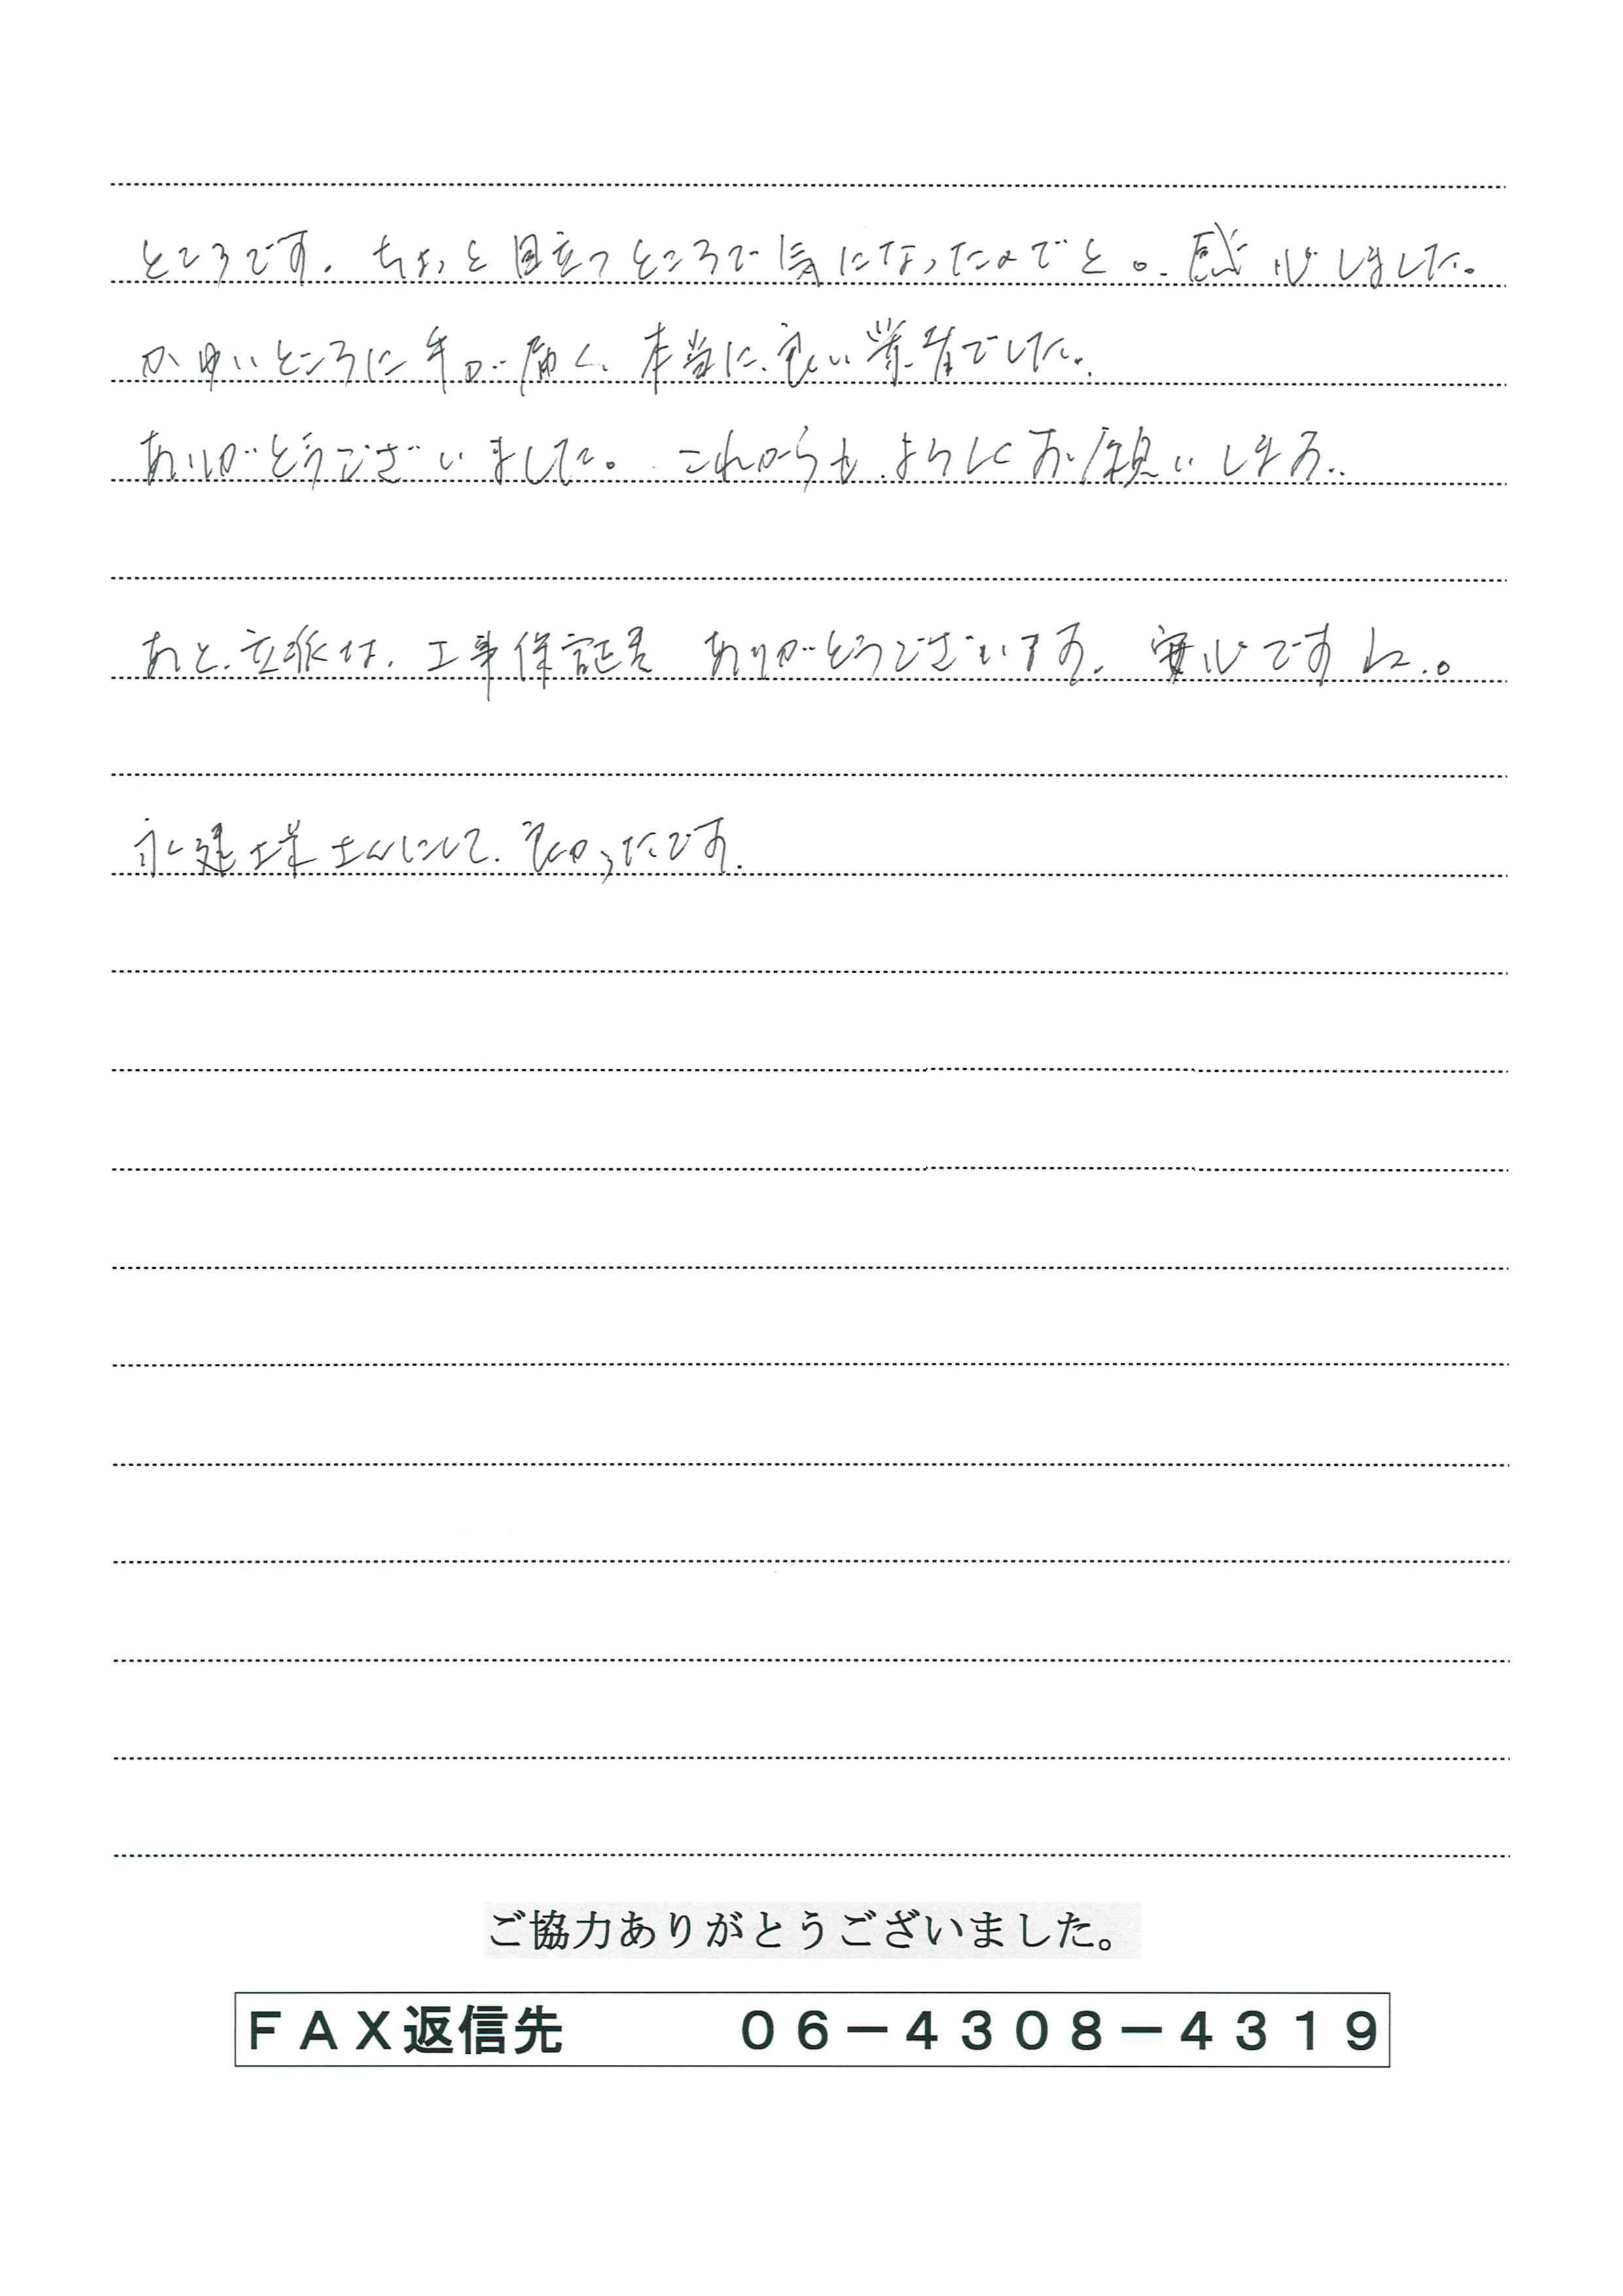 ところです。ちょっと目立つところで気になったのでと。感心しました。
かゆいところに手が届く、本当に良い業者でした。
ありがとうございました。これからも、よろしくお願いします。
あと、立派な、工事保証書 ありがとうございます。安心ですね。
永建工業さんにして、良かったです。
ご協力ありがとうございました。
FAX返信先 06-4308-4319